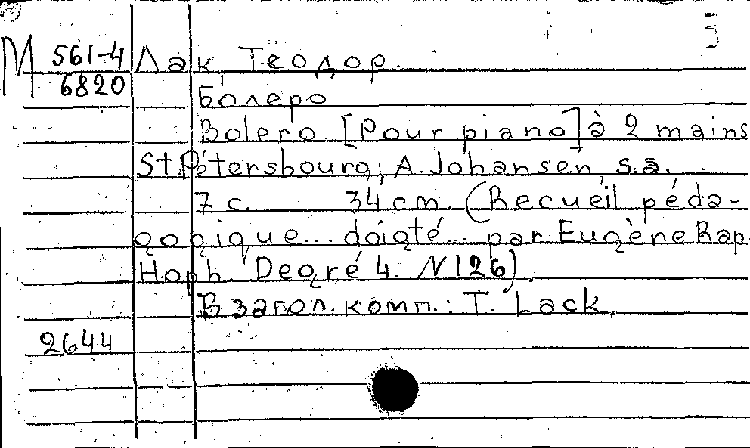 М 561-4 Лак, Теодор.
6820
Болеро
Bolero [Pour piano] à 2 mains
St. Pétersbourg, A. Johansen, s.a.
7 с. 34 cm. (Recueil péda-
gogique... doigté... par Eugène Rap-
Hoph. Degré 4. N 126).
В загол. комп.: T. Lack.
2644